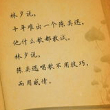 林夕说，
十年难出一个陈奕迅，
他什么歌都敢说。
林夕说，
陈奕迅唱歌不用技巧，
而用感情。